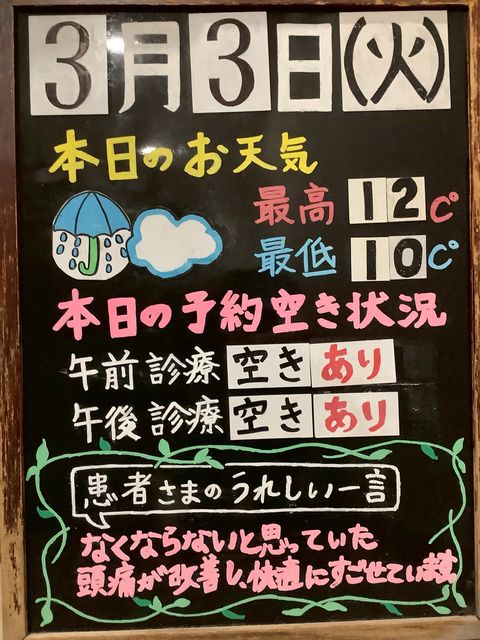 3月3日(火)
本日のお天気
最高 12C°
最低 10C°
本日の予約空き状況
午前診療 空き あり
午後診療 空き あり
患者さまのうれしい一言
なくならないと思っていた
頭痛が改善し、快適にすごせています